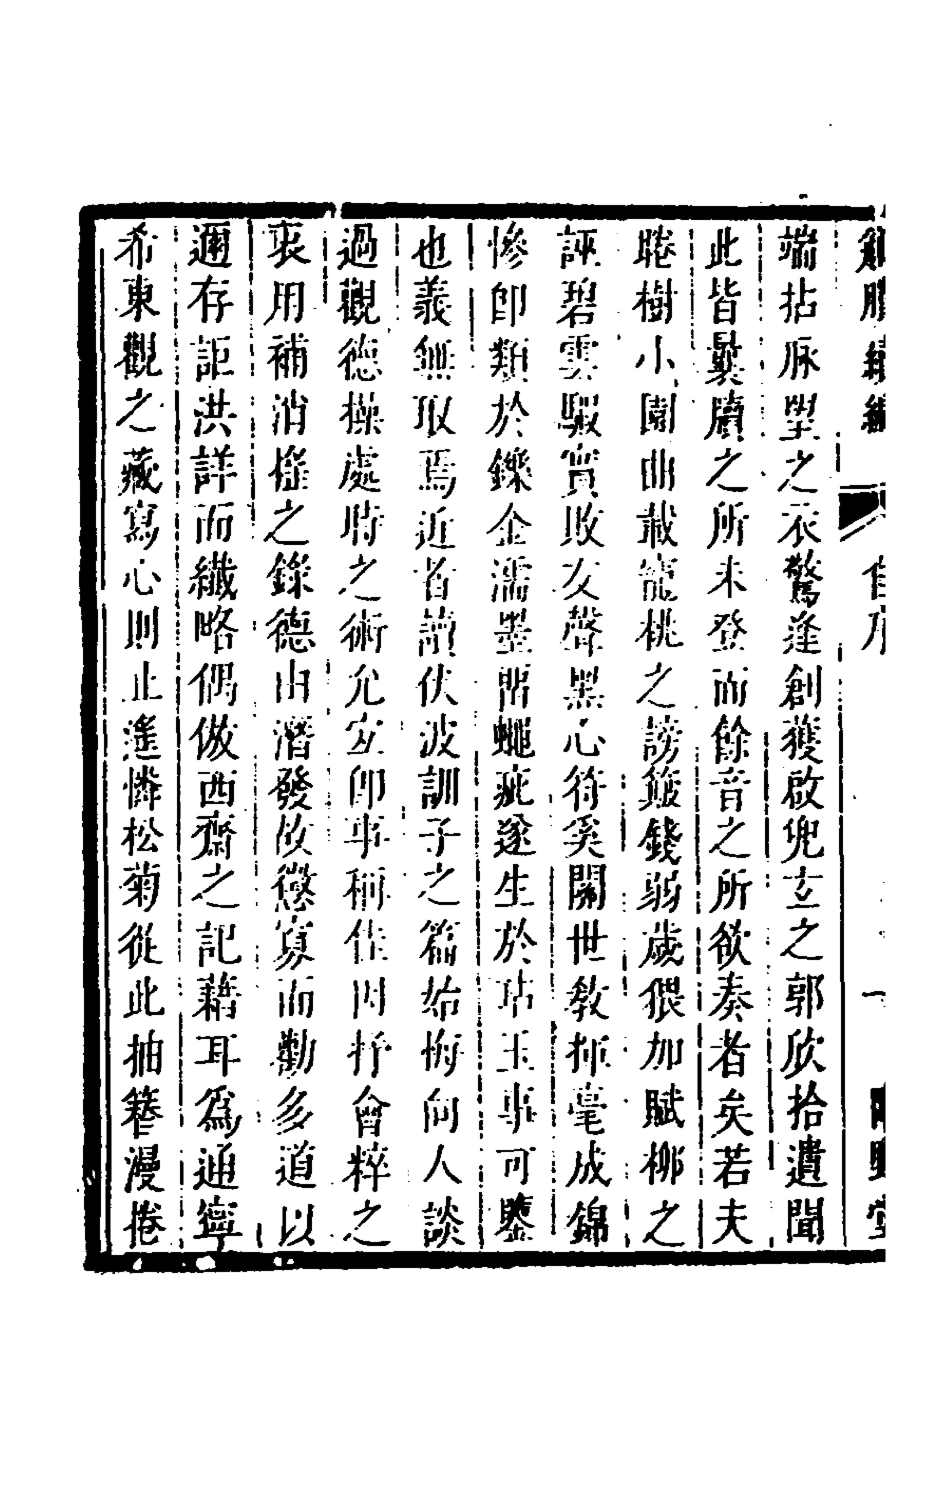 觚賸續編 自序 一 臨野堂
端拈脉望之衣驚逢創獲啟兜玄之郭欣拾遺聞
此皆曩牘之所未登而餘音之所欲奏者矣若夫
睠樹小園曲載寵桃之謗簸錢弱歲猥加賦柳之
誣碧雲騢實敗友聲黑心符奚關世敎揮毫成錦
慘卽類於鑠金濡墨留蠅疵遂生於玷玉事可鑒
也義無取焉近者讀伏波訓子之篇始悔向人談
過觀德操處時之術允宜卽事稱佳因抒會粹之
衷用補消搖之錄德由潛發故懲寡而勸多道以
邇存詎洪詳而纖略偶倣西齋之記藉耳爲通寧
希東觀之藏寫心則止遙憐松菊從此抽簪漫捲